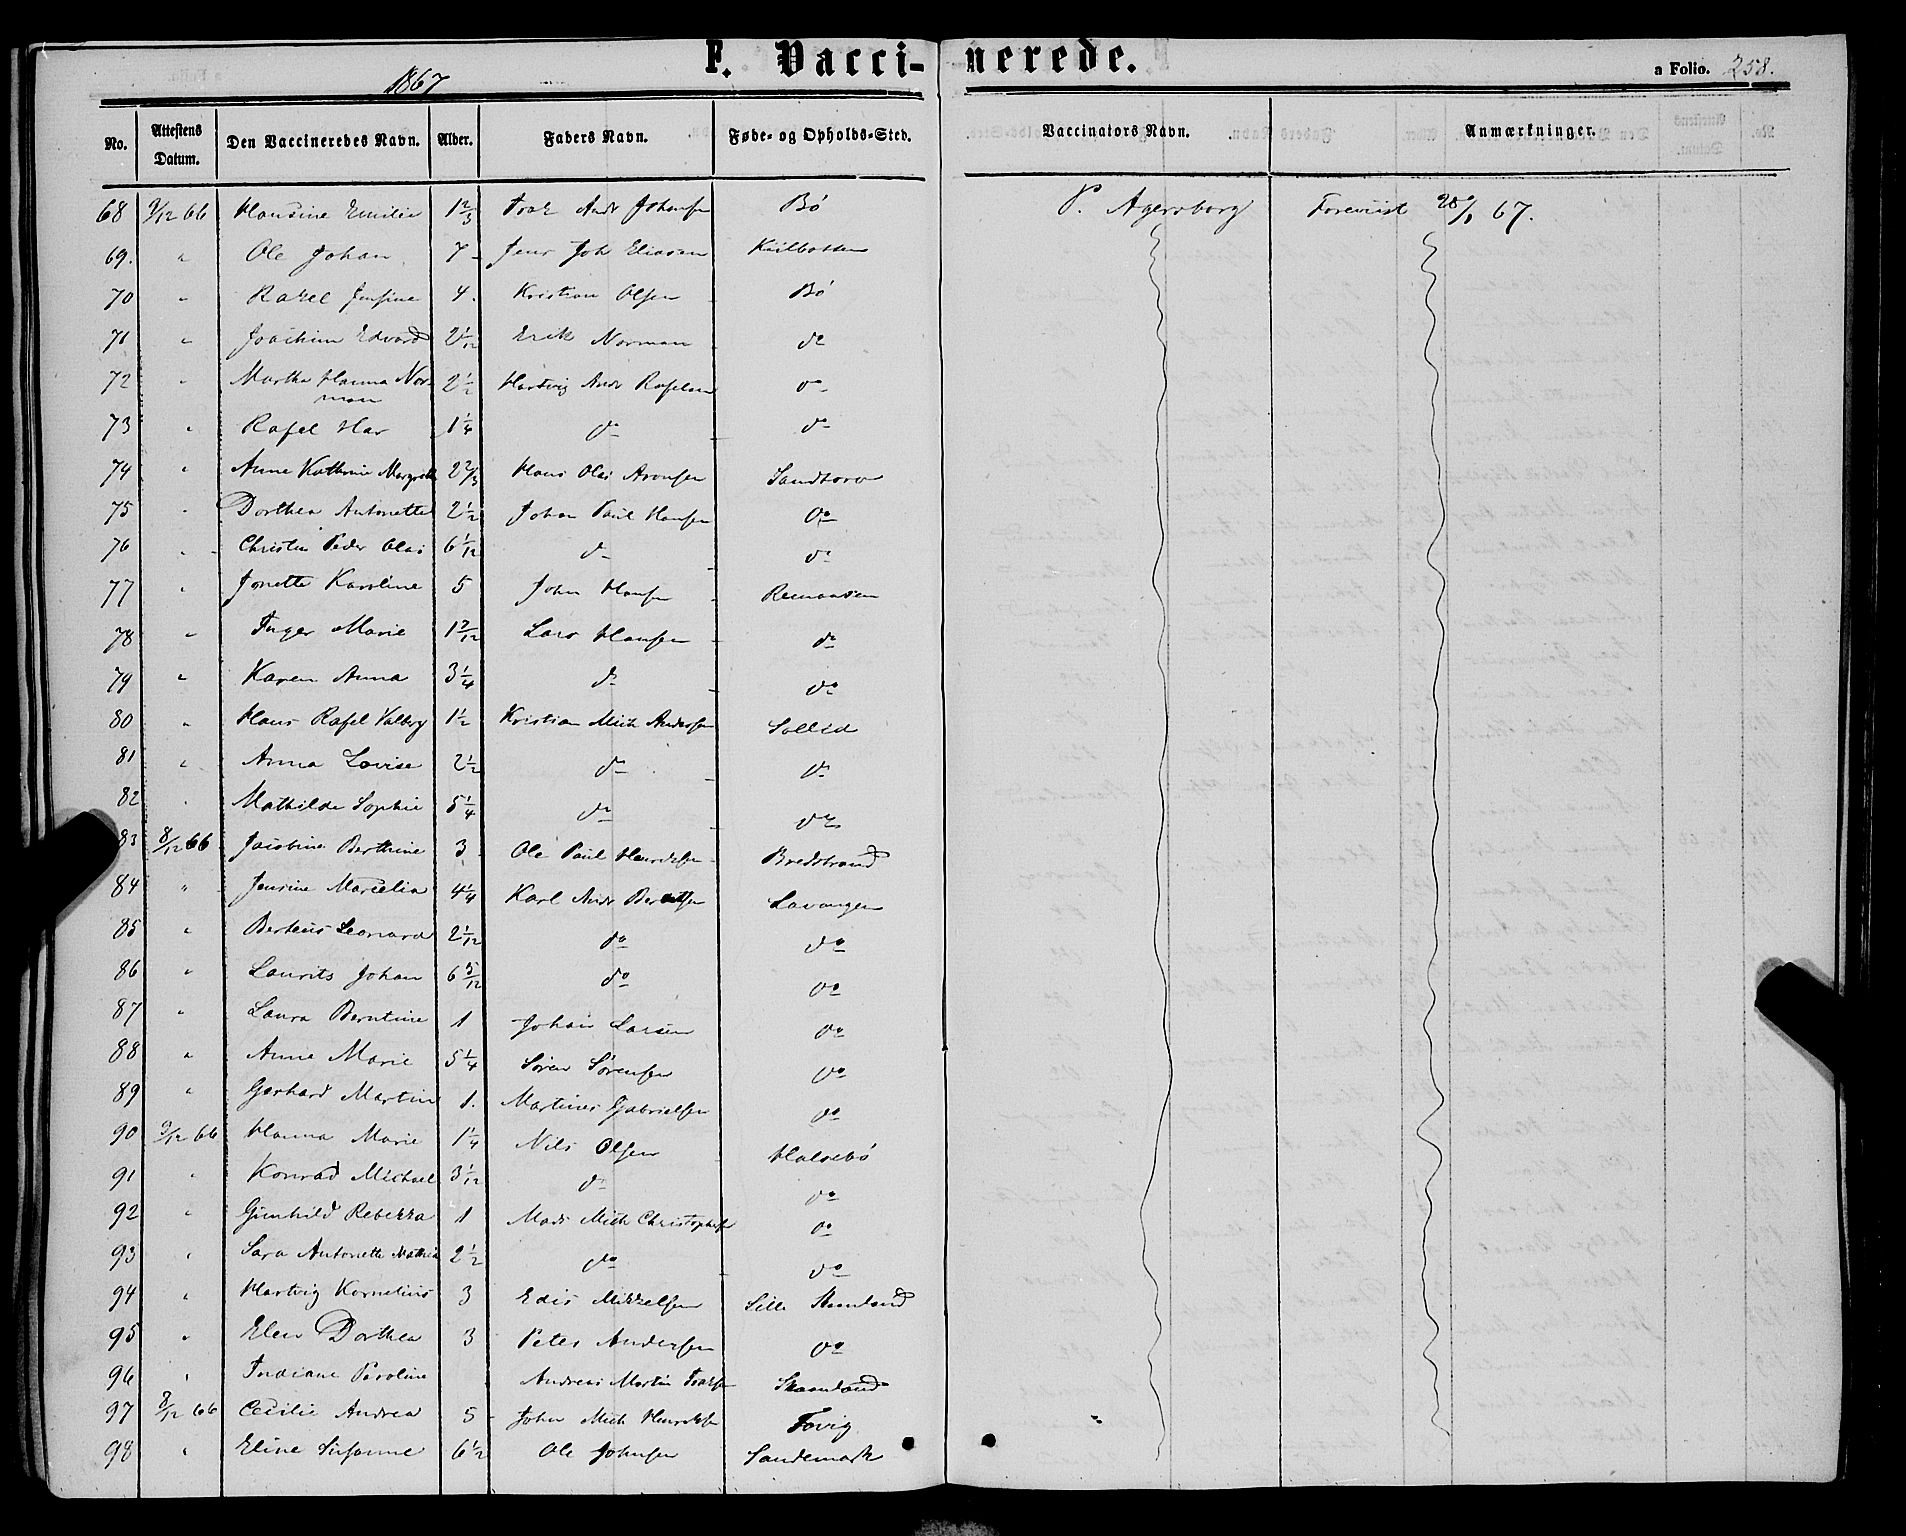 F. Vaccinerede.
1867
a Folio. 258.
No. Attestens Datum. Den Vaccineredes Navn. Alder. Faders Navn. Føde- og Opholds-Sted. Vaccinators Navn. Anmærkninger.
68 9/12 66 Hansine Emilie 1 2/3 Isak Andr Johansen Bö P. Agersborg Foreviist 28/1 67.
69. " Ole Johan 7 Jens Joh Eliasen Kiilbotten
70 " Rakel Jensine 4. Kristian Olsen Bö
71 " Joachim Edvard 2 1/12 Erik Norman do
72 " Martha Hanna Nor-
man 2 1/2 Hartvig Andr Rafelsen do
73 " Rafel Har 1 1/4 do do
74 " Anne Kathrine Margrethe 2 2/3 Hans Olai Aronsen Sandtorv
75 " Dorthea Antonette 2 1/2 Johan Paul Hansen do
76 " Christin Peder Olai 6 1/12 do do
77 " Jonette Karoline 5 John Hansen
78 " Inger Marie 1 7/12 Lars Hansen do
79 " Karen Anna 3 1/4 do do
80 " Hans Rafel Valberg 1 1/2 Kristian Mich Andersen Sollid
81 " Anna Lovise 2 1/2 do do
82 " Mathilde Sophie 5 1/4 do do
83 8/12 66 Jacobine Berthine 3 Ole Paul Henriksen Bredstrand
84 " Jensine Marcelia 4 1/4 Karl Andr Berntsen Lavangen
85 " Berteus Leonard 2 1/12 do do
86 " Laurits Johan 6 5/12 do do
87 " Laura Berntine 1 Johan Larsen do
88 " Anne Marie 5 1/4 Sören Sörensen do
89 " Gerhard Martin 1. Martines Gabrielsen do
90 9/12 66 Hanna Marie 1 1/4 Nils Olsen Halsebö
91 " Konrad Michael 3 1/12 do do
92 " Gunhild Rebekka 1 Mads Mich Christophersen do
93 " Sara Antonette Mathia 2 1/2 do do
94 " Hartvig Kornelius 3 Edis Mikkelsen Lille Skanland
95 " Elen Dorthea 3 Peter Andersen do
96 " Indiane Paroline Andreas Martin Isaksen Skaanland
97 8/12 66 Cecilie Andrea 5 John Mich Henriksen Fovig
98 " Eline Susanne 6 1/2 Ole Johnsen Sandemark